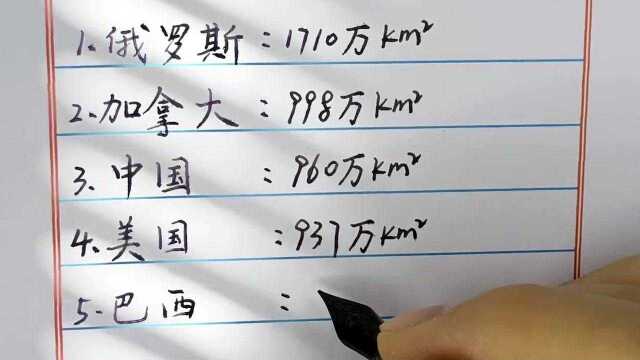 1.俄罗斯：1710万km²
2.加拿大：998万km²
3.中国：960万km²
4.美国：937万km²
5.巴西：